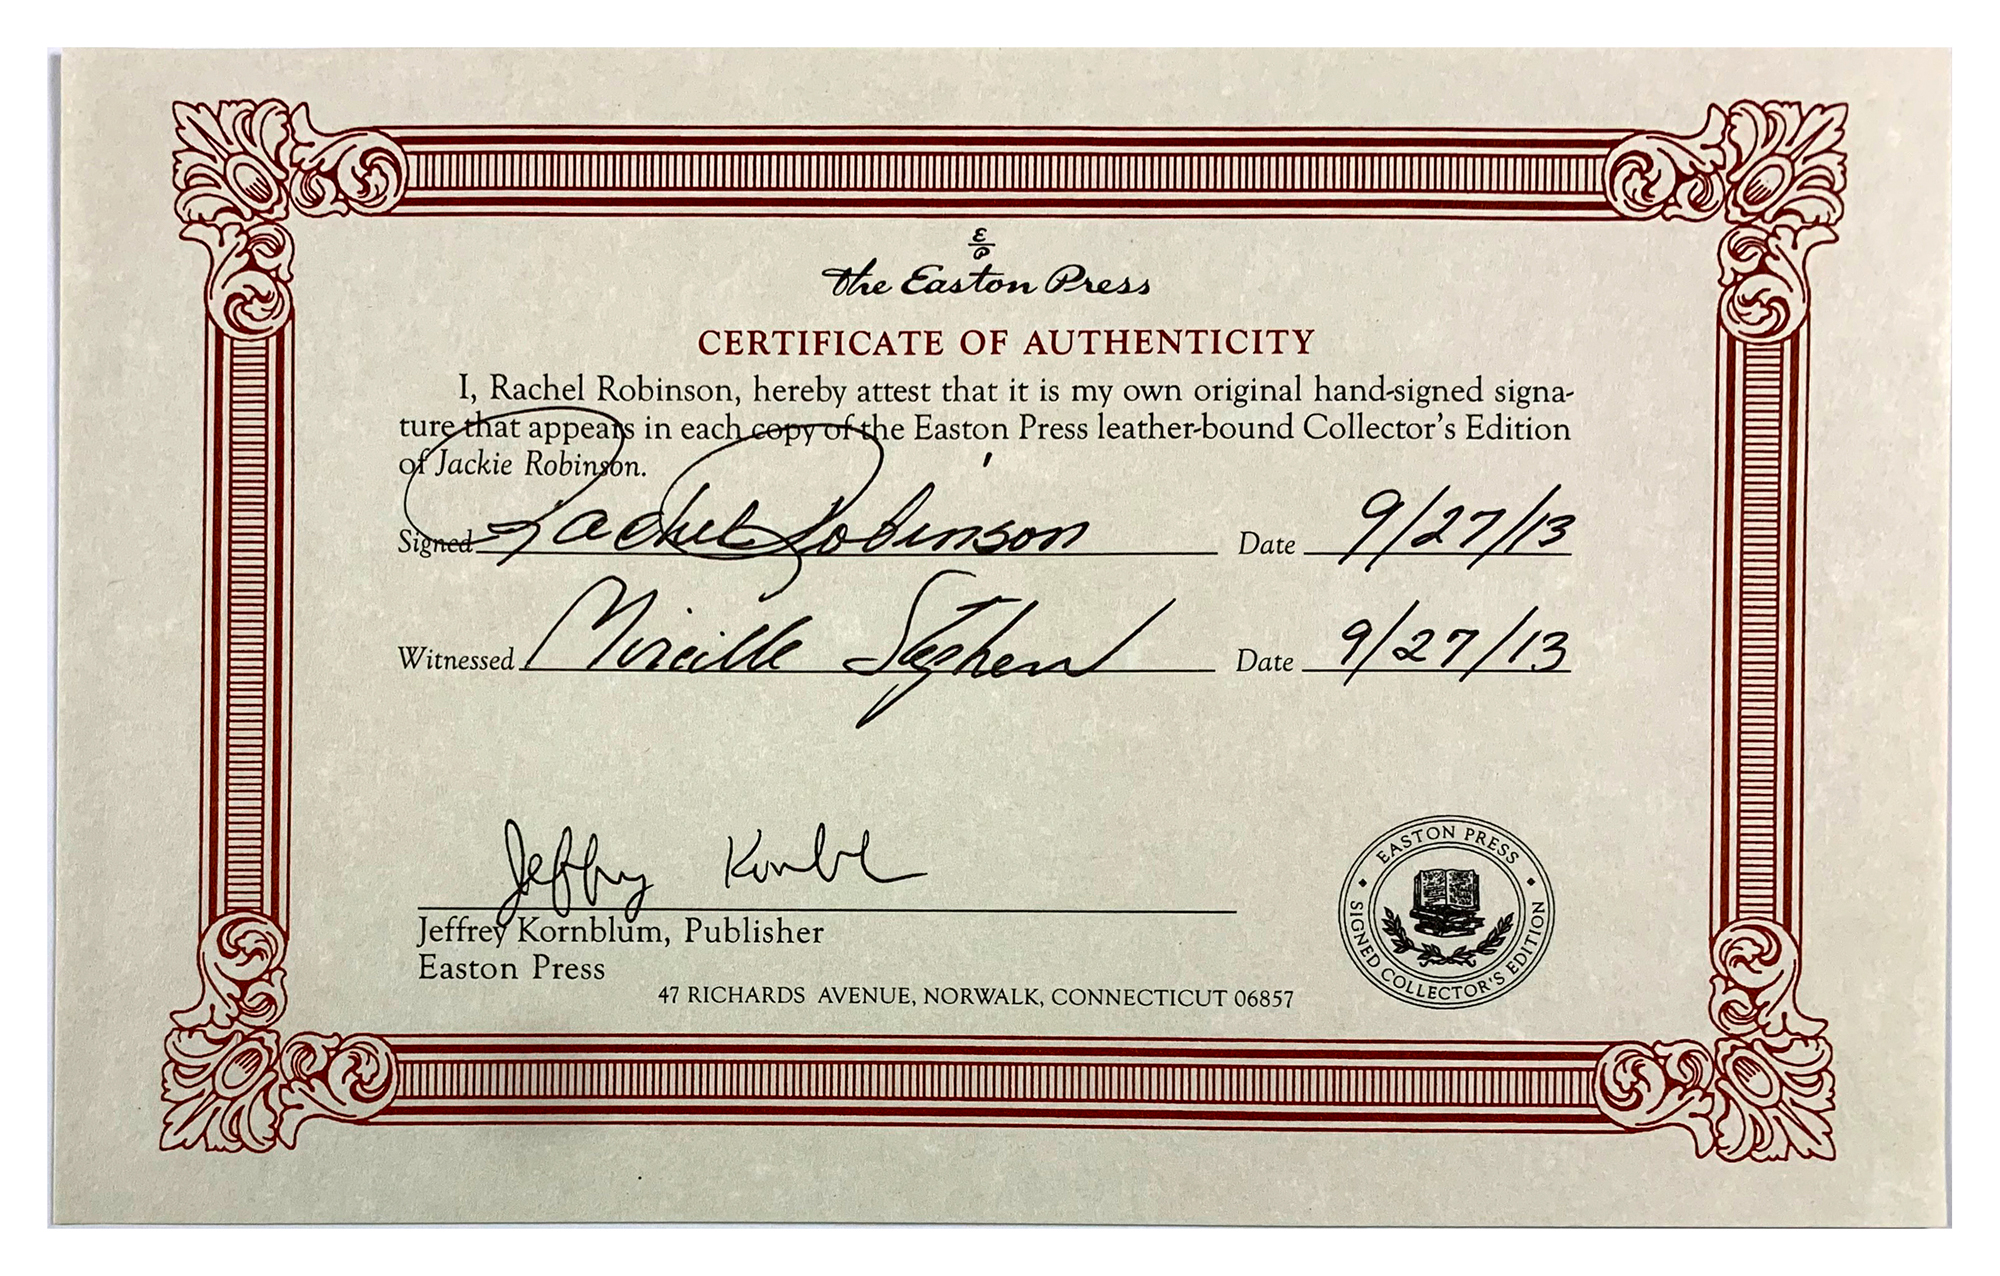 E
P
the Easton Press
CERTIFICATE OF AUTHENTICITY
I, Rachel Robinson, hereby attest that it is my own original hand-signed signa-
ture that appears in each copy of the Easton Press leather-bound Collector's Edition
of Jackie Robinson.
Signed Rachel Robinson Date 9/27/13
Witnessed Mireille Stephen Date 9/27/13
Jeffrey Kornbl
Jeffrey Kornblum, Publisher
Easton Press
47 RICHARDS AVENUE, NORWALK, CONNECTICUT 06857
EASTON PRESS
SIGNED COLLECTOR'S EDITION